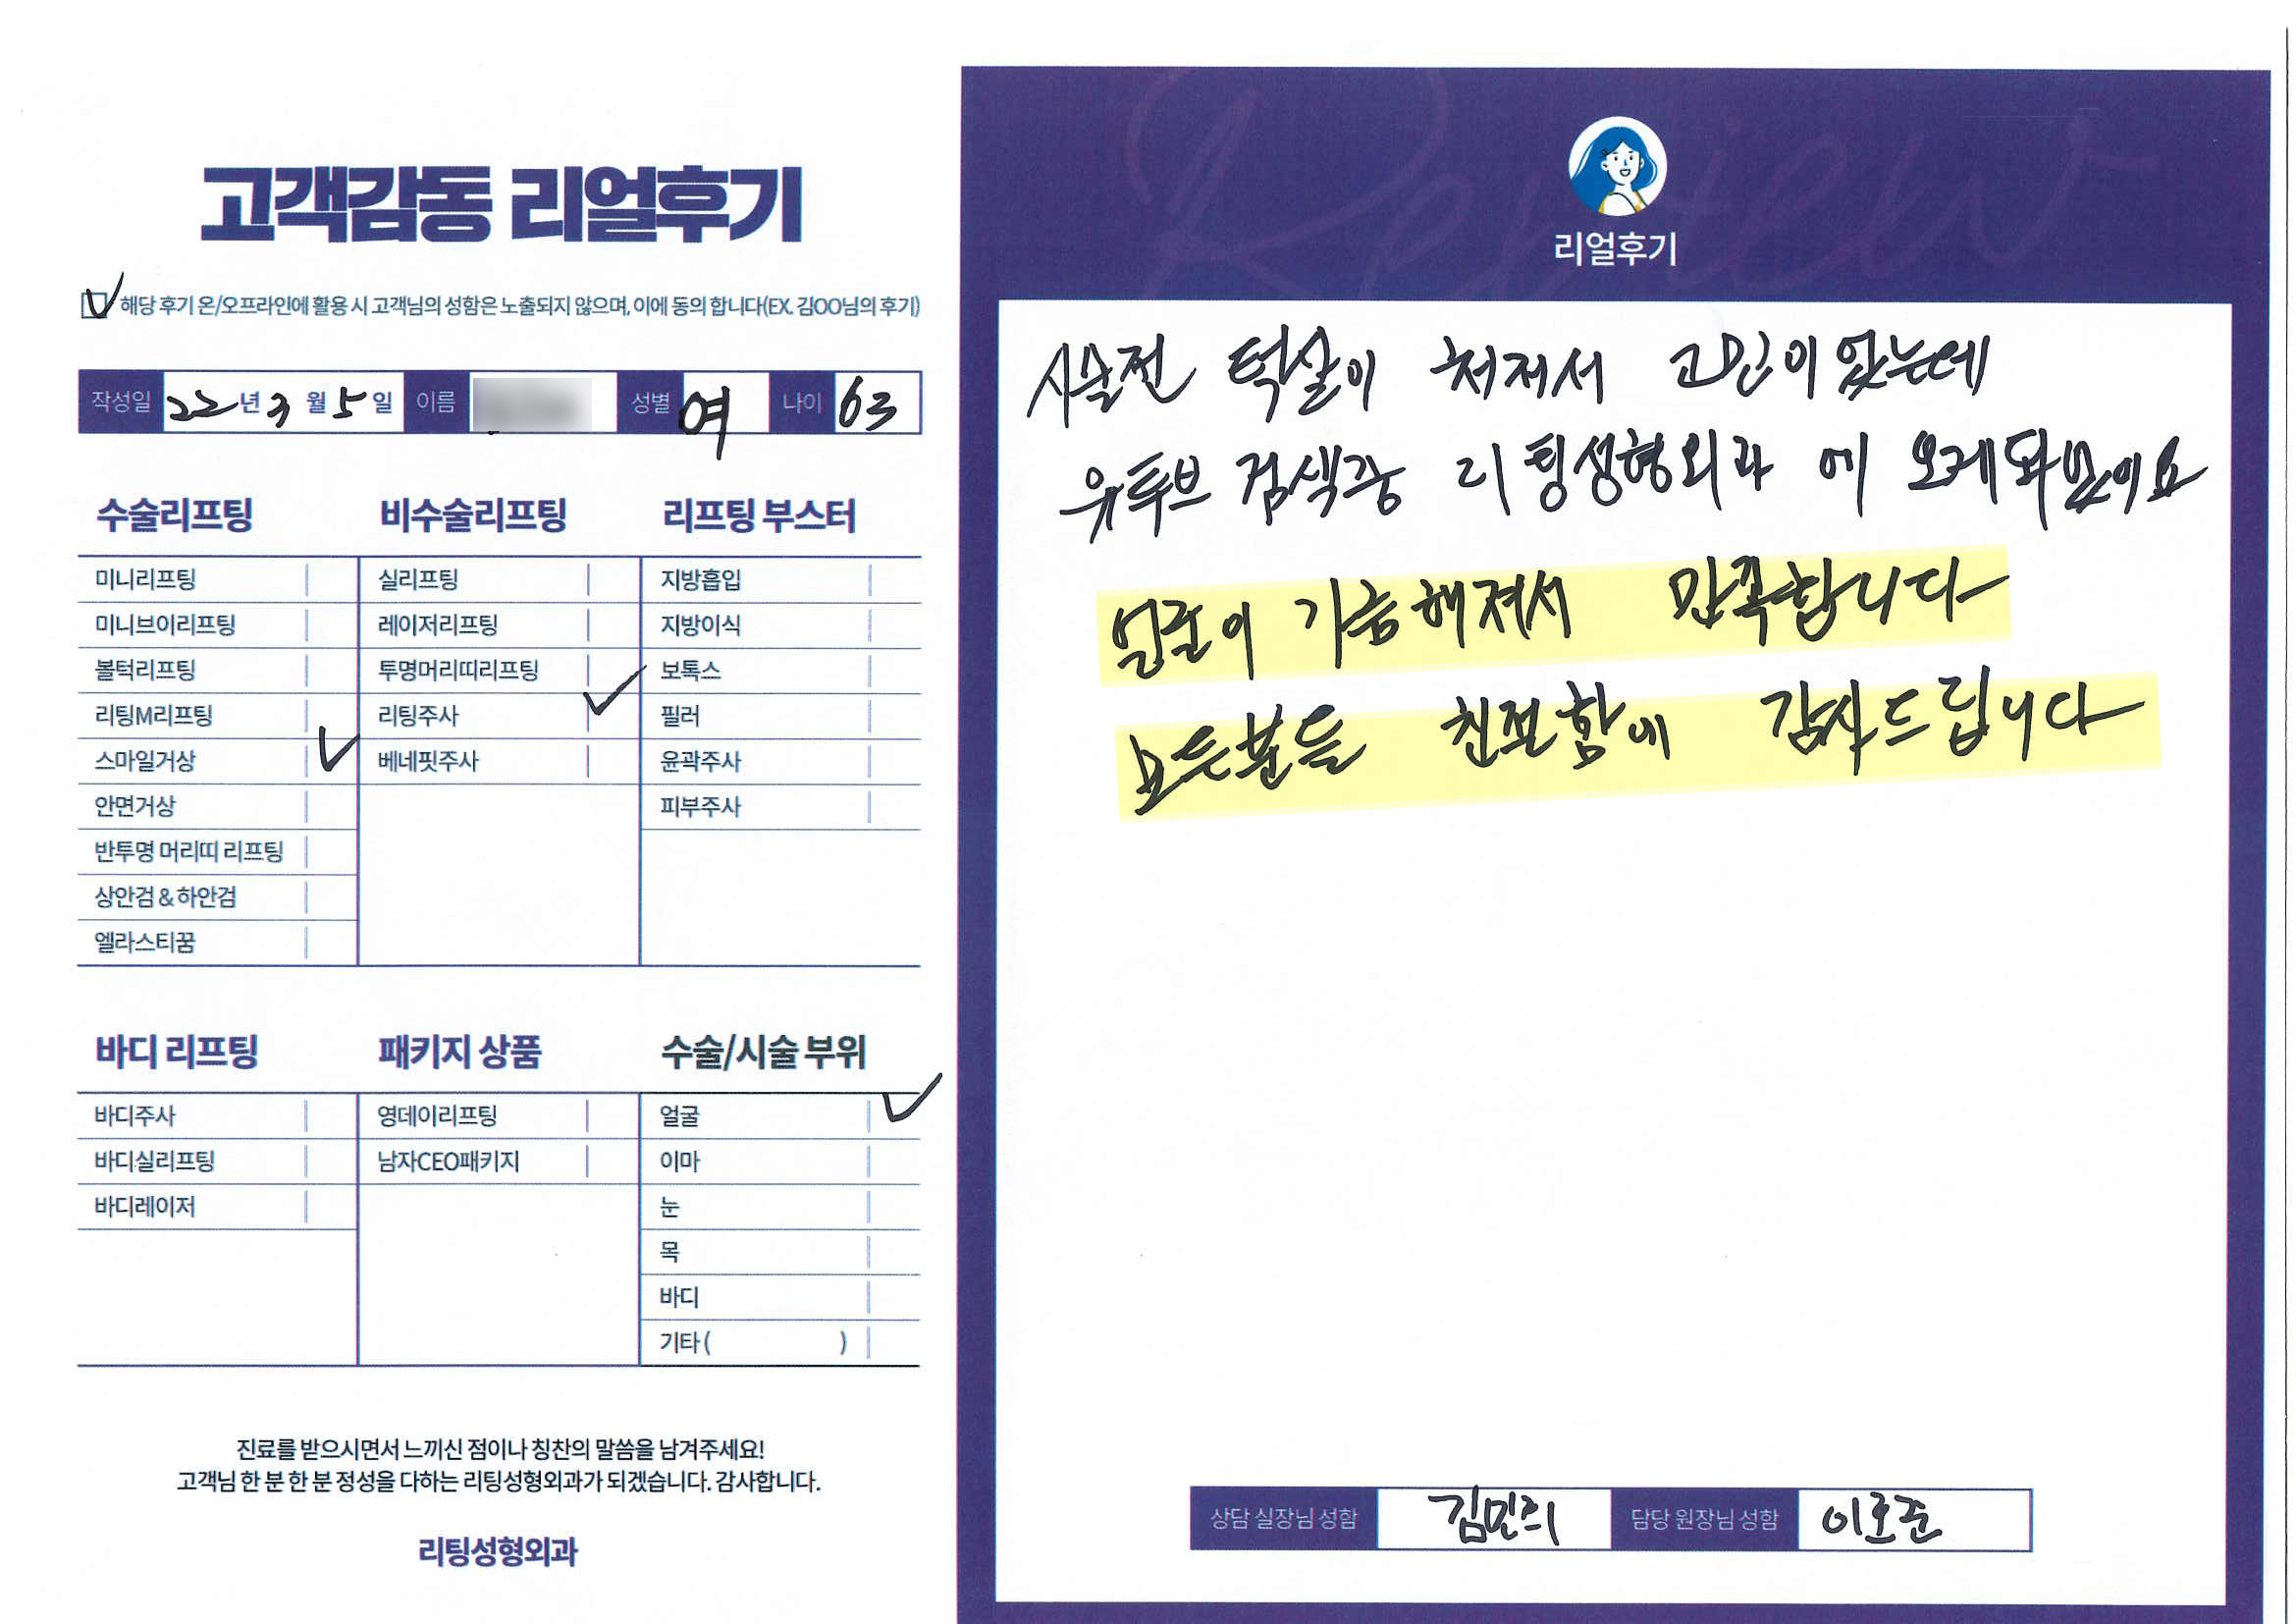 고객감동 리얼후기
해당 후기 온/오프라인에 활용 시 고객님의 성함은 노출되지 않으며, 이에 동의 합니다(EX. 김OO님의 후기)
작성일 22년 3월 5일 이름 성별 여 나이 63
수술리프팅
미니리프팅
미니브이리프팅
볼턱리프팅
리팅M리프팅
스마일거상
안면거상
반투명 머리띠 리프팅
상안검 & 하안검
엘라스티꿈
비수술리프팅
실리프팅
레이저리프팅
투명머리띠리프팅
리팅주사
베네핏주사
리프팅 부스터
지방흡입
지방이식
보톡스
필러
윤곽주사
피부주사
바디 리프팅
바디주사
바디실리프팅
바디레이저
패키지 상품
영데이리프팅
남자CEO패키지
수술/시술 부위
얼굴
이마
눈
목
바디
기타 ( )
진료를 받으시면서 느끼신 점이나 칭찬의 말씀을 남겨주세요!
고객님 한 분 한 분 정성을 다하는 리팅성형외과가 되겠습니다. 감사합니다.
리팅성형외과
Review
리얼후기
시술전 턱살이 처져서 고민이 있는데
유투브 검색중 리팅성형외과 에 오게 되었어요
얼굴이 가름해져서 만족합니다
모든분들 친절함에 감사드립니다
상담 실장님 성함 김민희 담당 원장님 성함 이호준